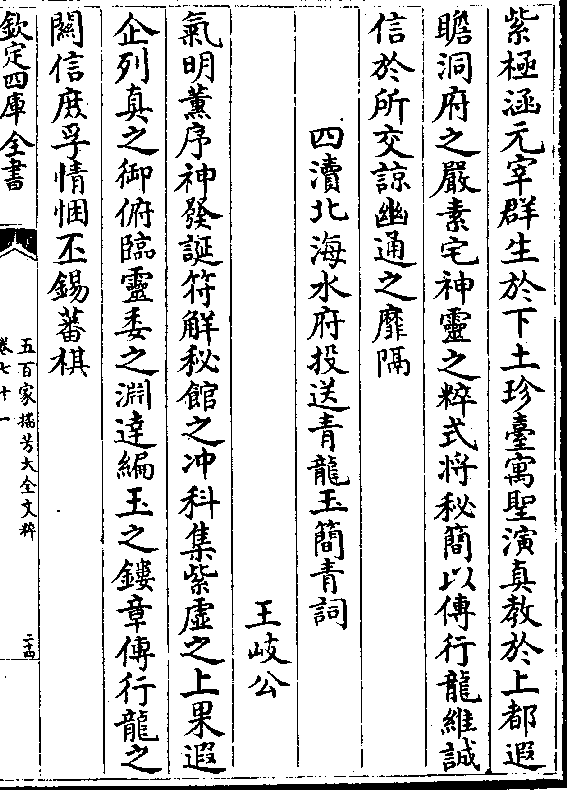 紫極涵元宰群生於下土珍臺寓聖演真教於上都遐
瞻洞府之嚴素宅神靈之粹式將秘簡以傳行龍維誠
信於所交諒幽通之靡隔
四瀆北海水府投送青龍玉簡青詞
王岐公
氣明薰序神發誕符解秘館之冲科集紫虛之上果遐
企列真之御俯臨靈委之淵達編玉之鏤章傳行龍之
關信庶孚情悃丕錫蕃棋
欽定四庫全書
五百家播芳大全文粹
卷七十一
二十四